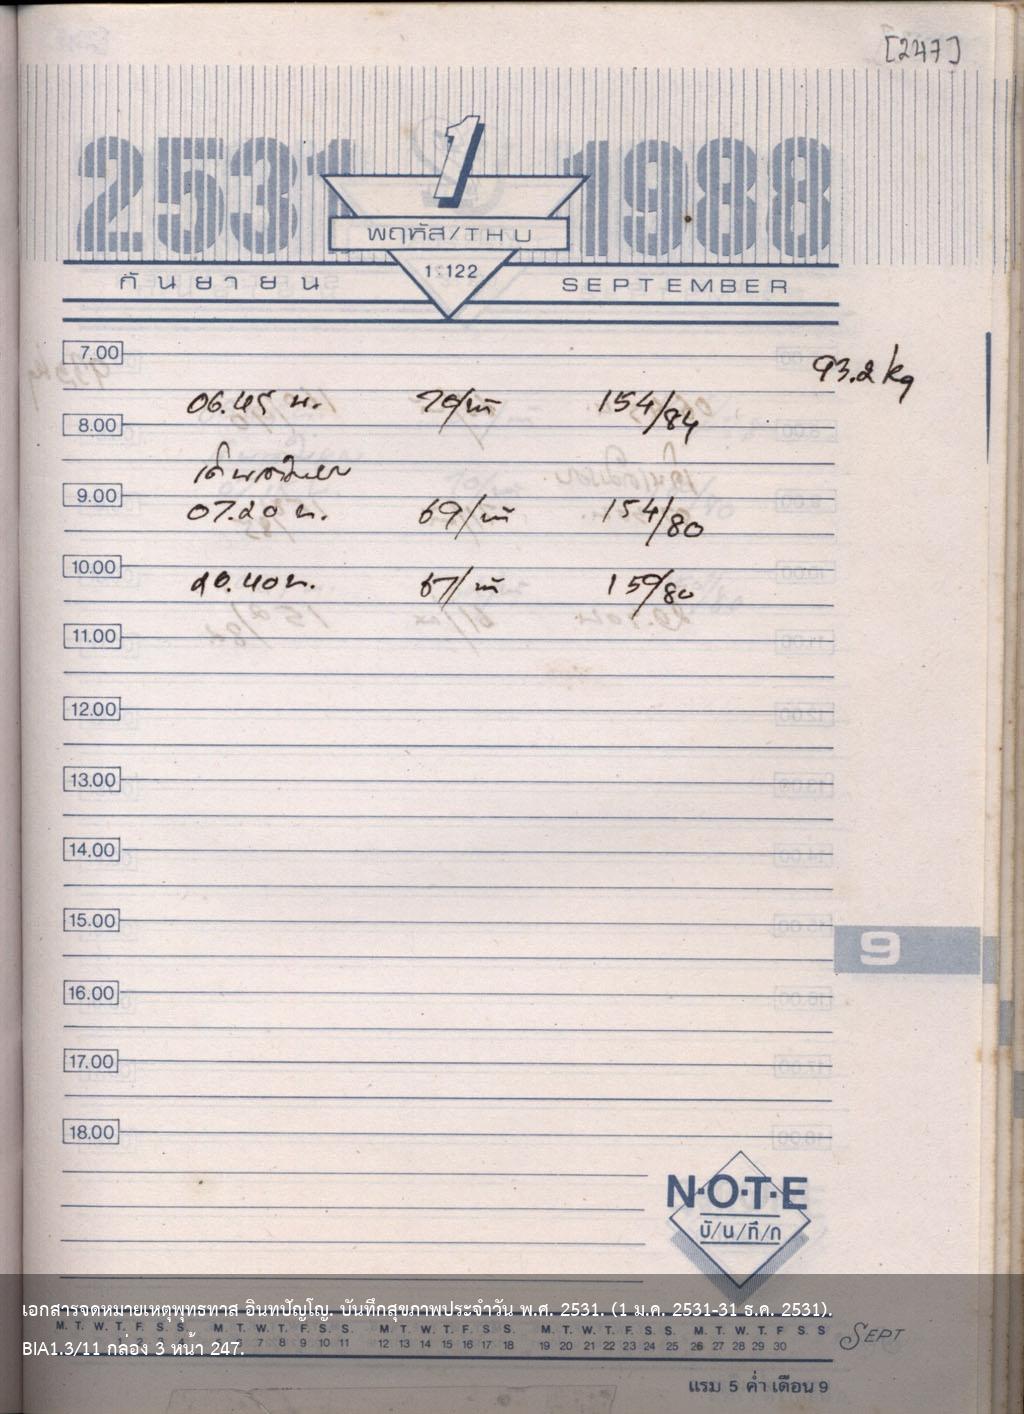 [247]
2531 1 1988
พฤหัส/THU
1:122
กันยายน SEPTEMBER
7.00
93.2 kg
06.45 น. 70/น 154/84
8.00
9.00
07.20 น. 69/น 154/80
10.00
20.40 น. 67/น 159/80
11.00
12.00
13.00
14.00
15.00
9
16.00
17.00
18.00
N·O·T·E
บั/น/ทึ/ก
เอกสารจดหมายเหตุพุทธทาส อินทปัญโญ. บันทึกสุขภาพประจำวัน พ.ศ. 2531. (1 ม.ค. 2531-31 ธ.ค. 2531).
M. T. W. T. F. S. S. M. T. W. T. F. S. S. M. T. W. T. F. S. S. M. T. W. T. F. S. S. M. T. W. T. F S. S
1 2 3 4 5 6 7 8 9 10 11 12 13 14 15 16 17 18 19 20 21 22 23 24 25 26 27 28 29 30
SEPT
BIA1.3/11 กล่อง 3 หน้า 247.
แรม 5 ค่ำ เดือน 9